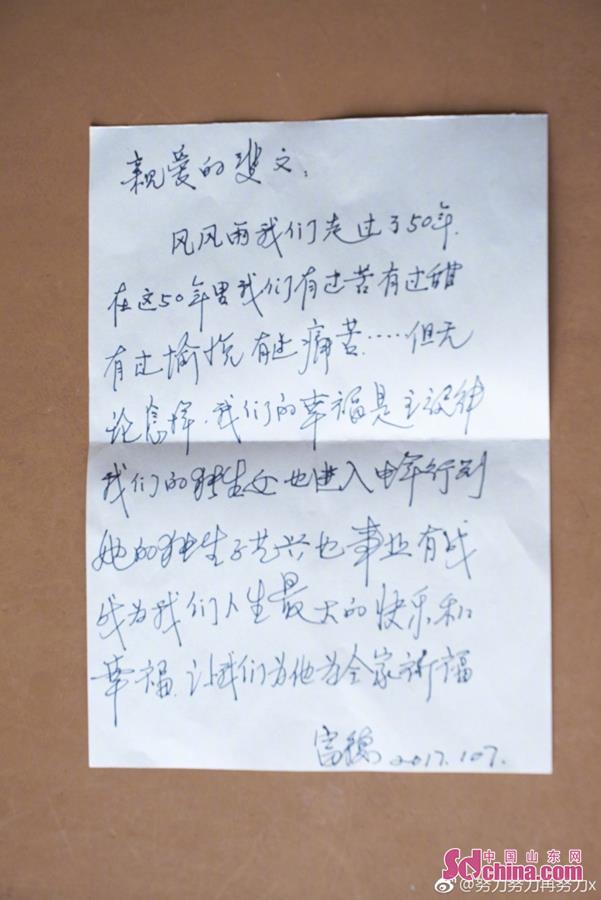 亲爱的斐文:
风风雨我们走过了50年.
在这50年里我们有过苦有过甜
有过愉悦有过痛苦……但无
论怎样.我们的幸福是主旋律
我们的独生女也进入中年行列
她的独生子艺兴也事业有成
成为我们人生最大的快乐和
幸福.让我们为他为全家祈福
富德 2017.107.
Sdchina.com
中国山东网
@努力努力再努力x